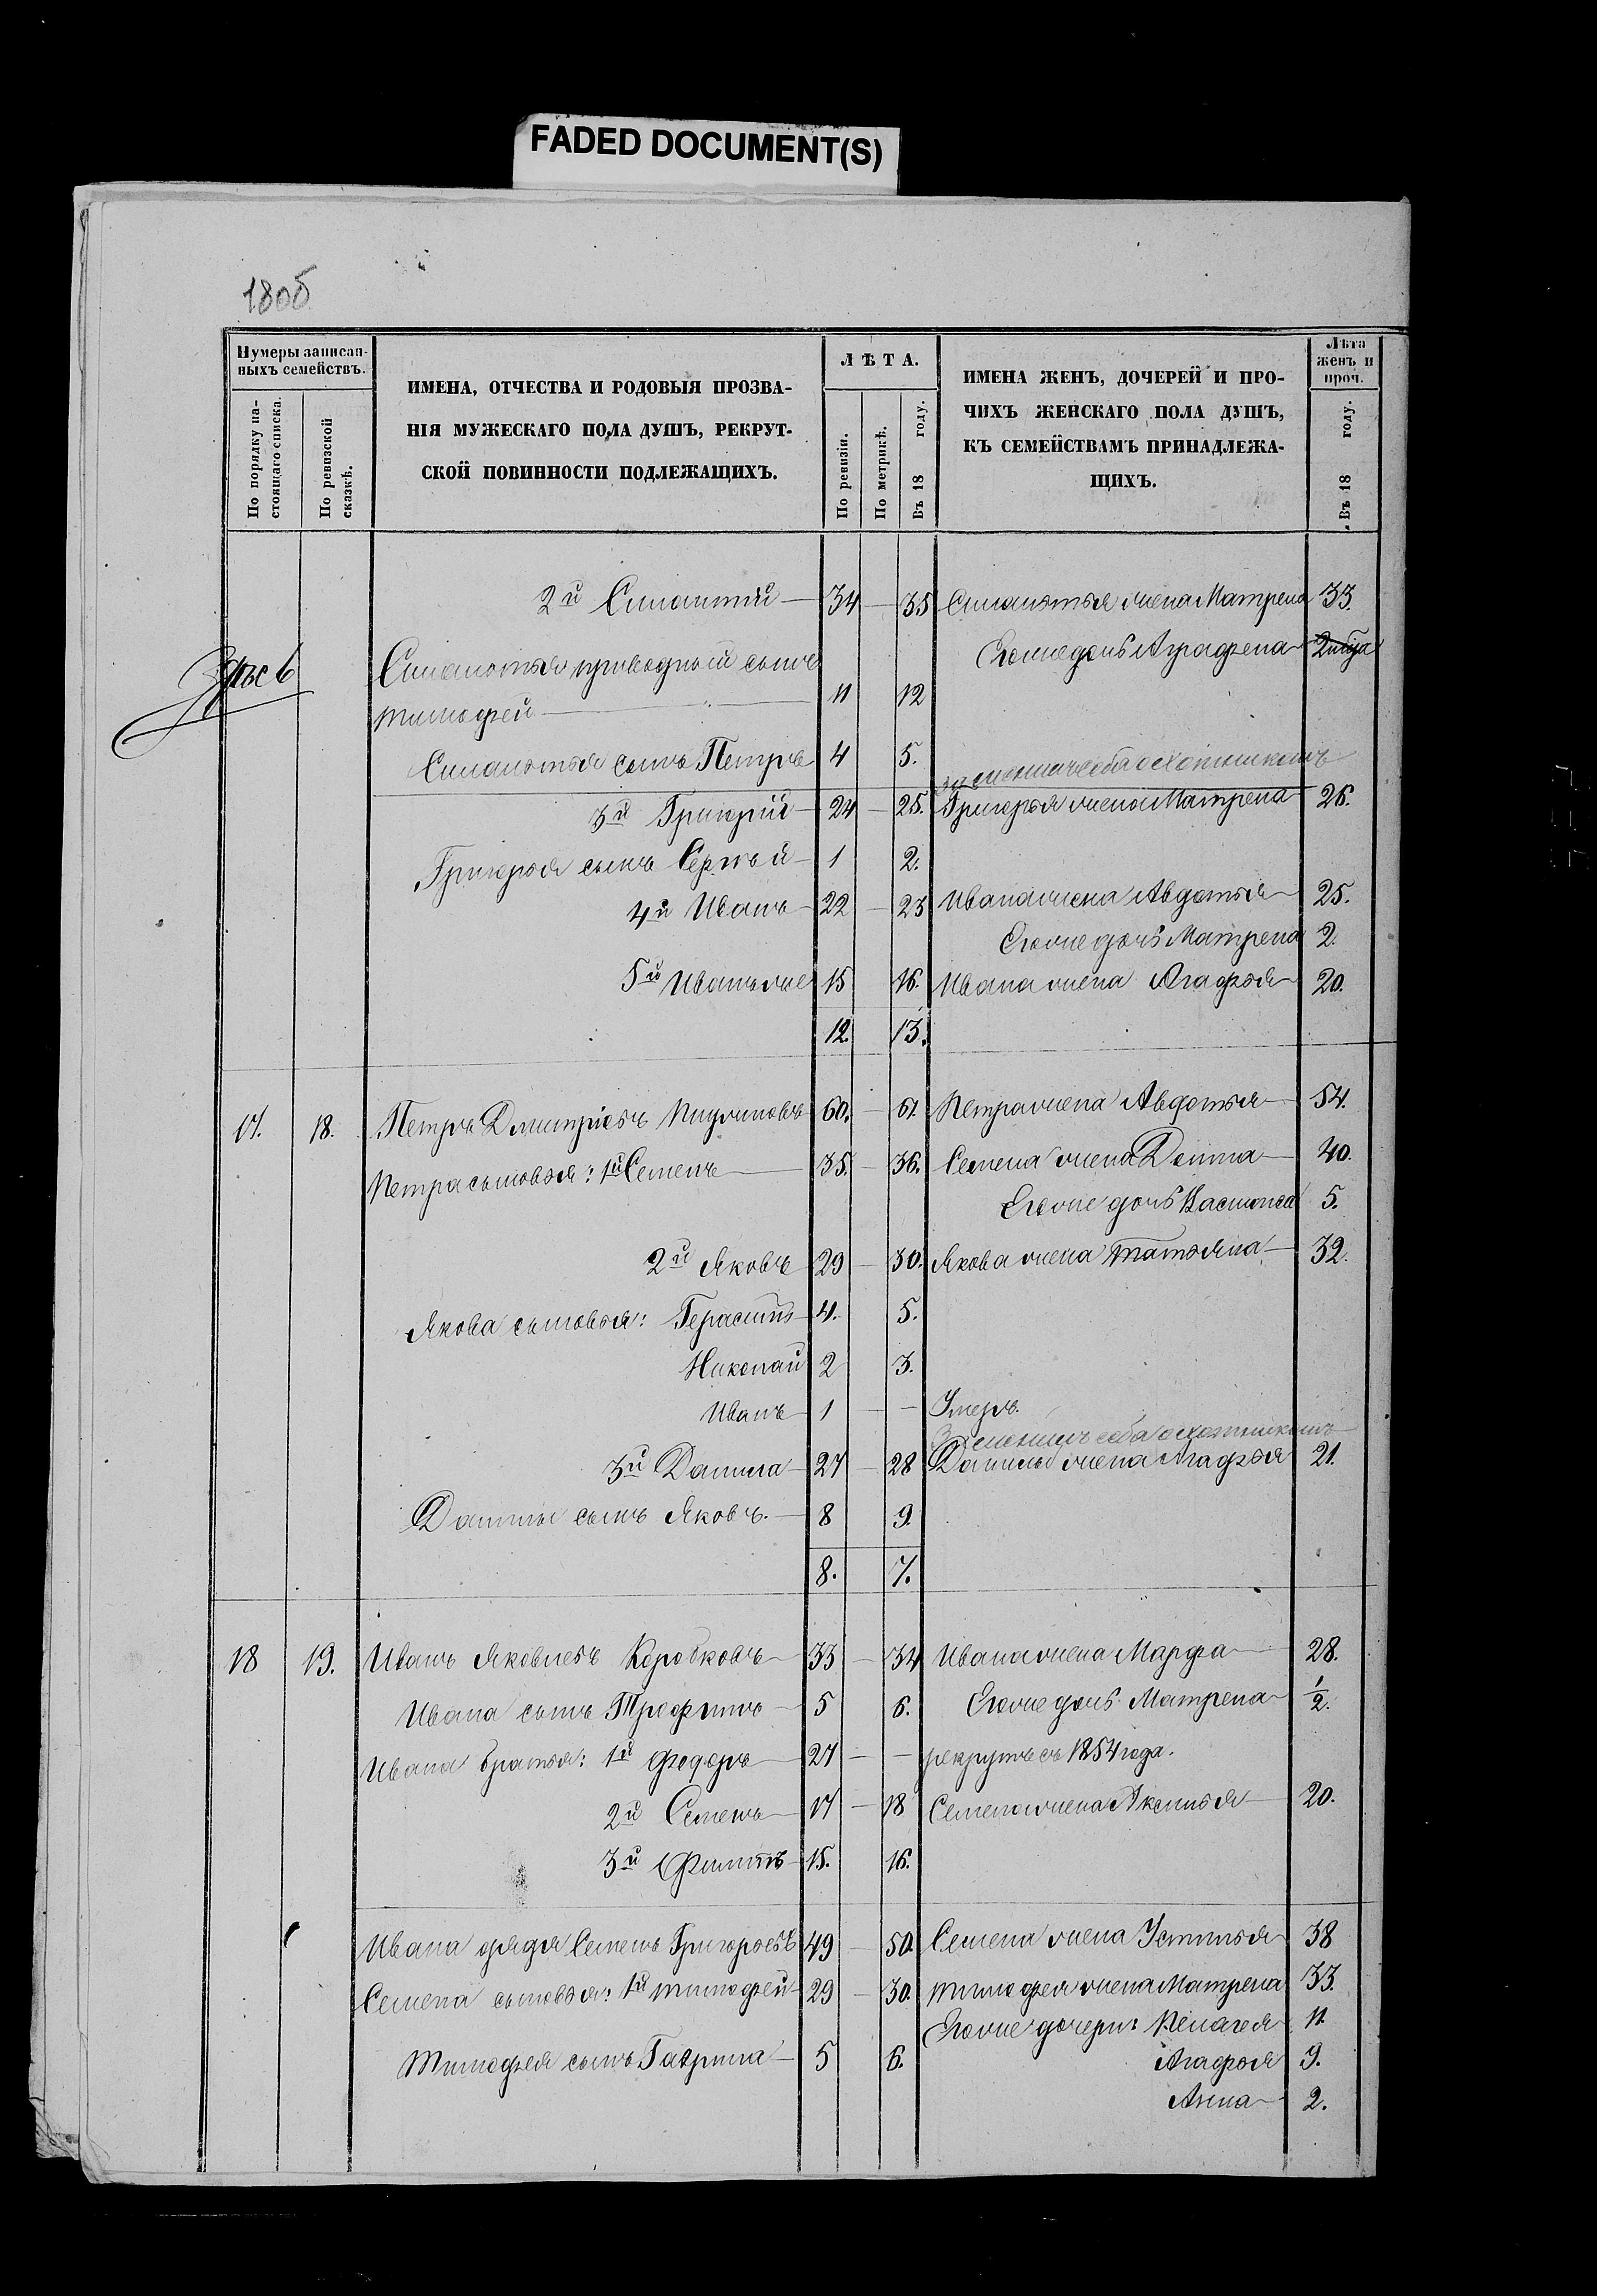 FADED DOCUMENT(S)
180б
Нумеры записан-
ныхъ семействъ.
По порядку на-
стоящаго списка.
По ревизской
сказкѣ.
ИМЕНА, ОТЧЕСТВА И РОДОВЫЯ ПРОЗВА-
НІЯ МУЖЕСКАГО ПОЛА ДУШЪ, РЕКРУТ-
СКОЙ ПОВИННОСТИ ПОДЛЕЖАЩИХЪ.
ЛѢТА.
По ревизіи.
По метрикѣ.
Въ 18 году.
ИМЕНА ЖЕНЪ, ДОЧЕРЕЙ И ПРО-
ЧИХЪ ЖЕНСКАГО ПОЛА ДУШЪ,
КЪ СЕМЕЙСТВАМЪ ПРИНАДЛЕЖА-
ЩИХЪ.
Лѣта
женъ и
проч.
Въ 18 году.
2й Силантій 34 35 Силантья жена Матрена 33.
Егоже дочь Аграфена
Здѣсь
Силантья приводной сынъ
Тимофей 11 12
Силантья сынъ Петръ 4 5.
себя охотникомъ
3й Григорій 24 25. Григорья жена Матрена 26.
Григорья сынъ Сергѣй 1 2.
4й Иванъ 22 23 Ивана жена Авдотья 25.
Егоже дочь Матрена 2.
5й Иванъ же 15 16. Ивана жена Агафья 20.
12. 13.
17. 18. Петръ Дмитріевъ 60. 61. Петра жена Авдотья 54.
Петра сыновья: 1й Семенъ 35. 36. Семена жена Домна 40.
Егоже дочь Василиса 5.
2й Яковъ 29 30. Якова жена Татьяна 32.
Якова сыновья: Герасимъ 4. 5.
Николай 2 3.
Иванъ 1 Умеръ.
себя охотникомъ
3й Данила 27 28 Данилы жена Агафья 21.
Данилы сынъ Яковъ. 8 9.
8. 7.
18 19. Иванъ Яковлевъ Коробковъ 33 34 Ивана жена Марфа 28.
Ивана сынъ Трофимъ 5 6. Егоже дочь Матрена ½.
Ивана братья: 1й Федоръ 27 рекрутъ съ 1854 года.
2й Семенъ 17 18 Семена жена Аксинья 20.
3й Филипъ 15. 16.
Ивана дядя Семенъ Григорьевъ 49 50. Семена жена Устинья 38
Семена сыновья: 1й Тимофей 29 30. Тимофея жена Матрена 33.
Егоже дочери: Пелагея 11.
Тимофея сынъ Гаврила 5 6. Агафья 9.
Анна 2.